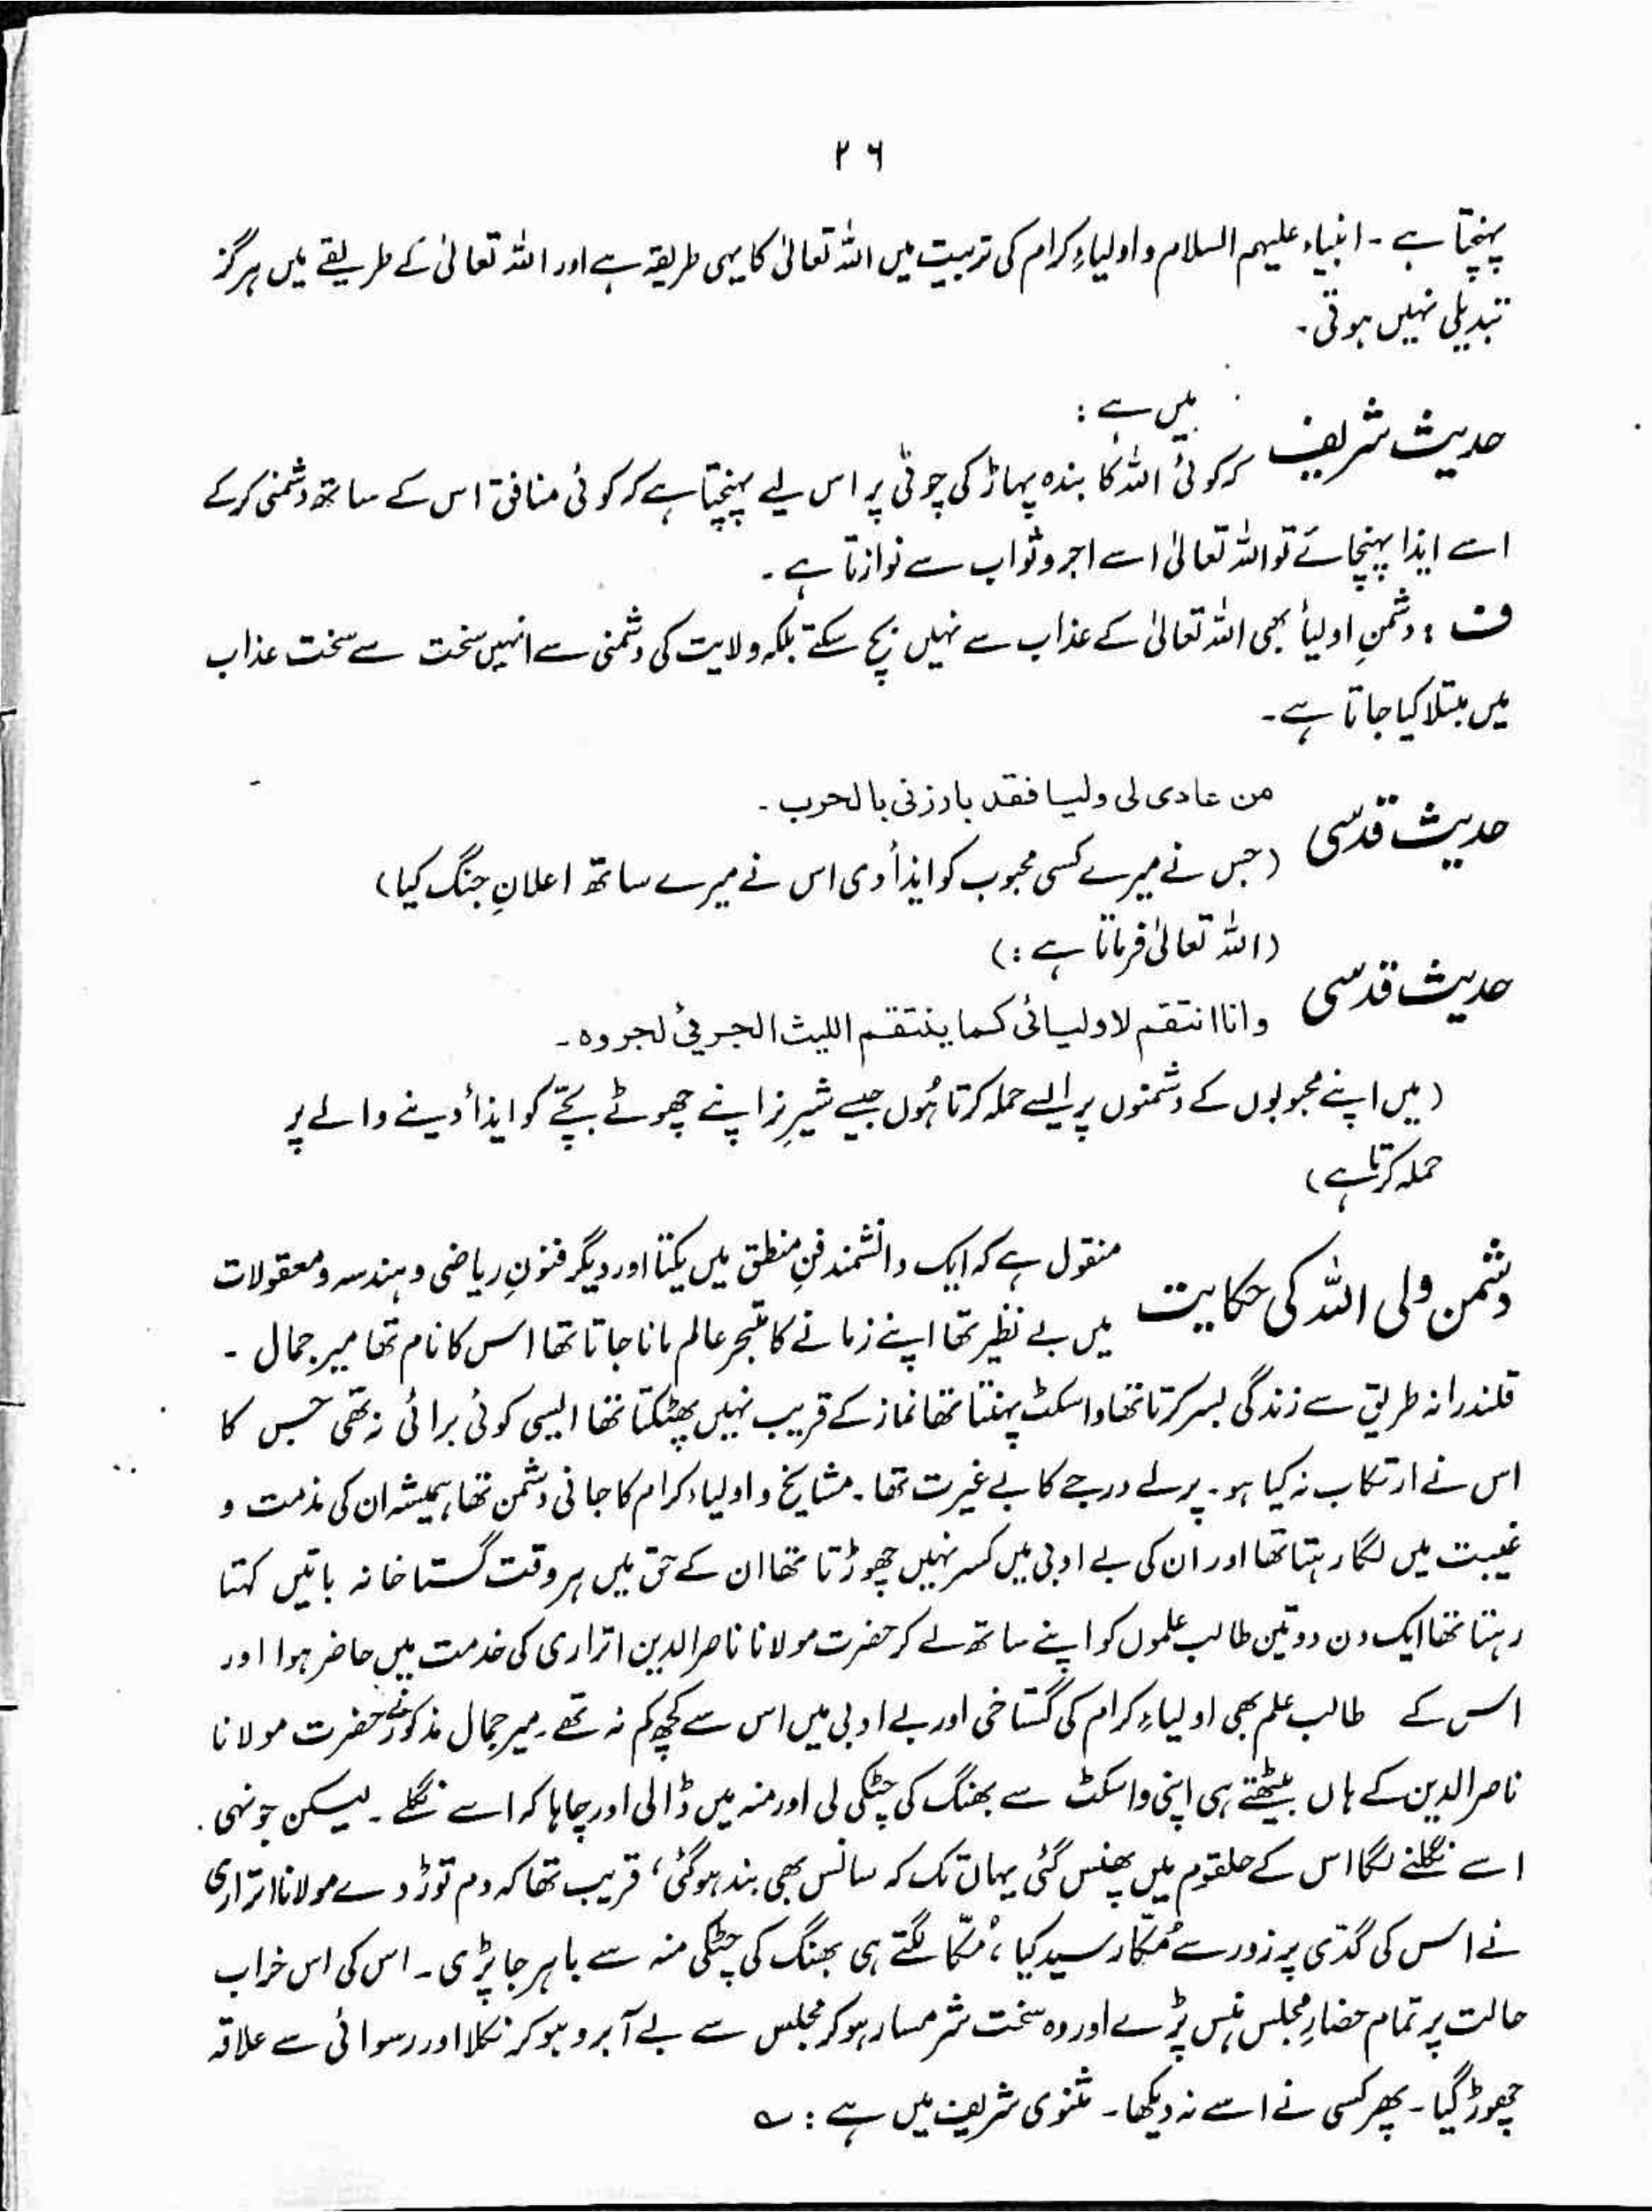 ۲۶
پہنچتا ہے ۔ انبیاء علیہم السلام و اولیاءِ کرام کی تربیت میں اللہ تعالیٰ کا یہی طریقہ ہے اور اللہ تعالیٰ کے طریقے میں ہرگز
تبدیلی نہیں ہوتی ۔
حدیث شریف میں ہے :
کہ کوئی اللہ کا بندہ پہاڑ کی چوٹی پر اس لیے پہنچتا ہے کہ کوئی منافق اس کے ساتھ دشمنی کرکے
اسے ایذا پہنچائے تو اللہ تعالیٰ اسے اجر و ثواب سے نوازتا ہے ۔
ف : دشمنِ اولیأ بھی اللہ تعالیٰ کے عذاب سے نہیں بچ سکتے بلکہ ولایت کی دشمنی سے انہیں سخت سے سخت عذاب
میں مبتلا کیا جاتا ہے ۔
حدیث قدسی من عادی لی ولیا فقد بارزنی بالحرب ۔
(جس نے میرے کسی محبوب کو ایذأ دی اس نے میرے ساتھ اعلانِ جنگ کیا)
حدیث قدسی (اللہ تعالیٰ فرماتا ہے :)
وانا انتقم لاولیائی کما ینتقم اللیث الجریٔ لجروہ ۔
(میں اپنے محبوبوں کے دشمنوں پر ایسے حملہ کرتا ہُوں جیسے شیرِ نر اپنے چھوٹے بچّے کو ایذأ دینے والے پر
حملہ کرتا ہے)
دشمن ولی اللہ کی حکایت منقول ہے کہ ایک دانشمند فنِ منطق میں یکتا اور دیگر فنونِ ریاضی و ہندسہ و معقولات
میں بے نظیر تھا اپنے زمانے کا متبحر عالم مانا جاتا تھا اس کا نام تھا میر جمال ۔
قلندرانہ طریق سے زندگی بسر کرتا تھا واسکٹ پہنتا تھا نماز کے قریب نہیں پھٹکتا تھا ایسی کوئی برائی نہ تھی جس کا
اس نے ارتکاب نہ کیا ہو ۔ پرلے درجے کا بے غیرت تھا ۔ مشایخ و اولیاء کرام کا جانی دشمن تھا، ہمیشہ ان کی مذمت و
غیبت میں لگا رہتا تھا اور ان کی بے ادبی میں کسر نہیں چھوڑتا تھا ان کے حق میں ہر وقت گستاخانہ باتیں کہتا
رہتا تھا ایک دن دو تین طالب علموں کو اپنے ساتھ لے کر حضرت مولانا ناصر الدین اتراری کی خدمت میں حاضر ہوا اور
اس کے طالب علم بھی اولیاءِ کرام کی گستاخی اور بے ادبی میں اس سے کچھ کم نہ تھے ۔ میر جمال مذکور نے حضرت مولانا
ناصر الدین کے ہاں بیٹھتے ہی اپنی واسکٹ سے بھنگ کی چٹکی لی اور منہ میں ڈالی اور چاہا کہ اسے نگلے ۔ لیکن جونہی
اسے نگلنے لگا اس کے حلقوم میں پھنس گئی یہاں تک کہ سانس بھی بند ہو گئی ، قریب تھا کہ دم توڑ دے مولانا اتراری
نے اس کی گدّی پر زور سے مُکّا رسید کیا ، مُکّا لگتے ہی بھنگ کی چٹکی منہ سے باہر جا پڑی ۔ اس کی اس خراب
حالت پر تمام حضارِ مجلس ہنس پڑے اور وہ سخت شرمسار ہو کر مجلس سے بے آبرو ہو کر نکلا اور رسوائی سے علاقہ
چھوڑ گیا ۔ پھر کسی نے اسے نہ دیکھا ۔ مثنوی شریف میں ہے : ؎